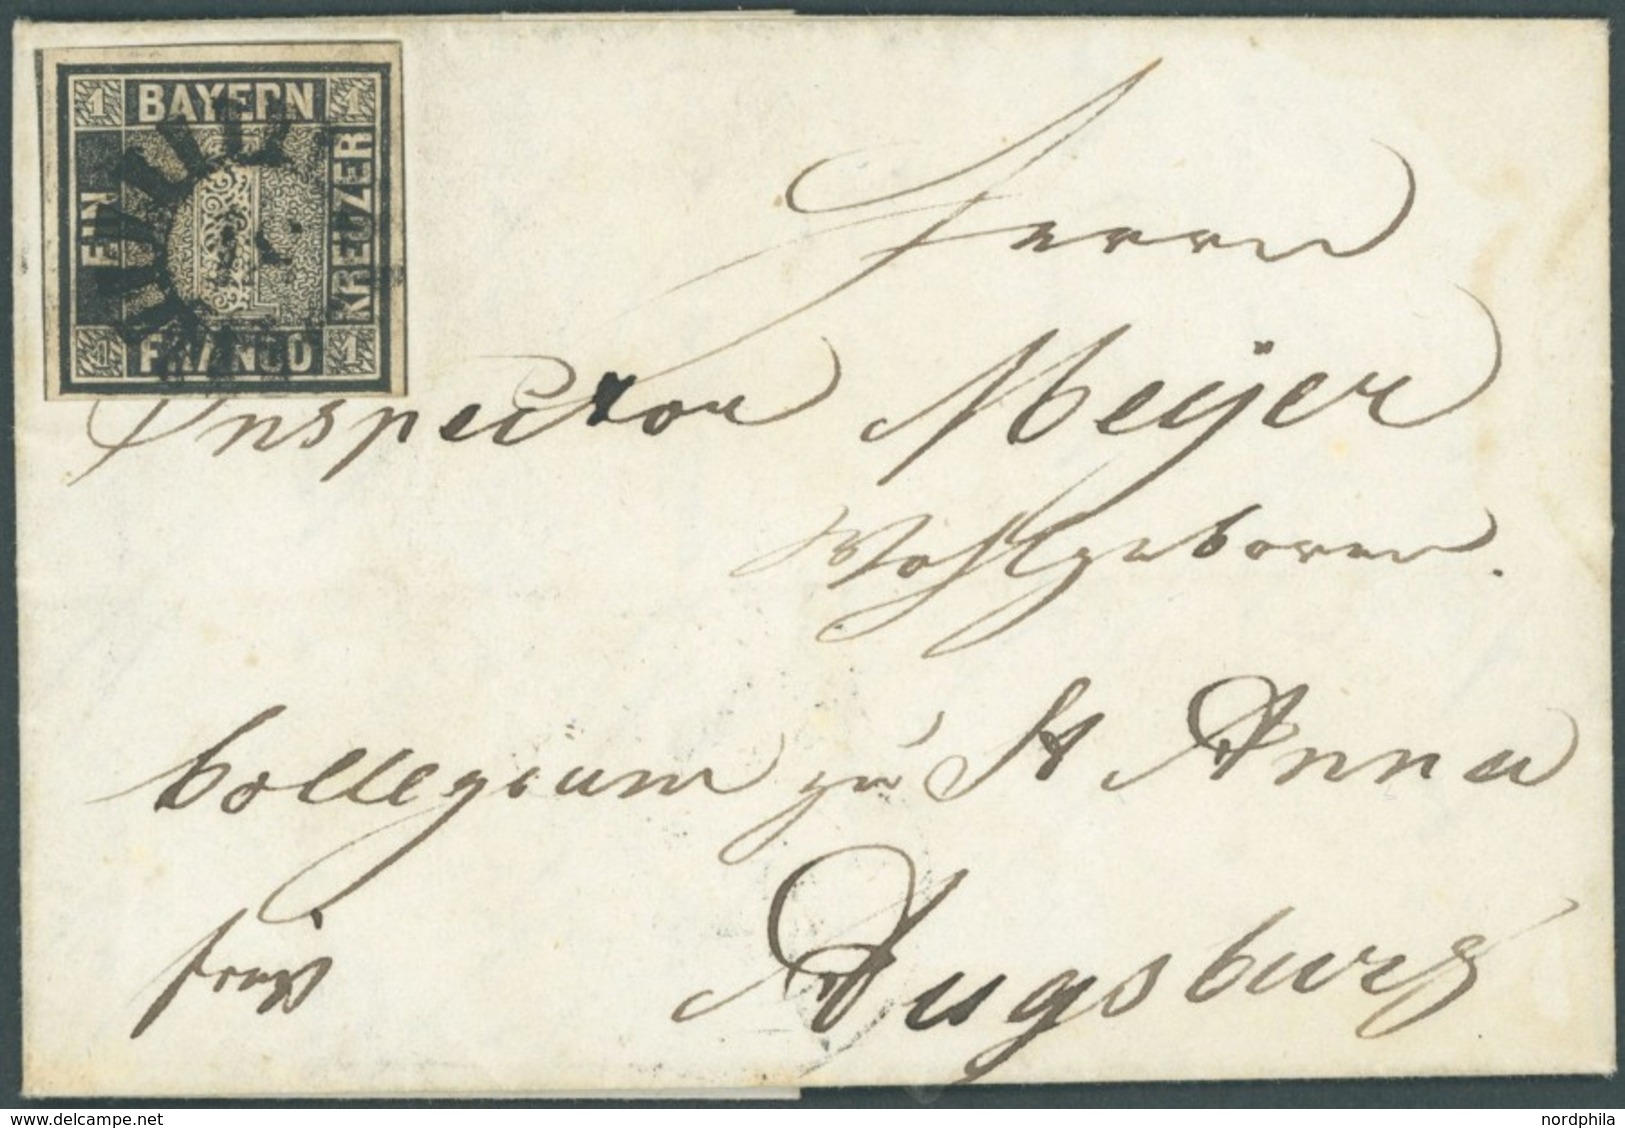 1 BAYERN 1
EIN
KREUZER
1 FRANCO 1
Herrn
Inspector Meÿer
Wohlgeboren.
Collegium zu St Anna
Augsburg
delcampe.net
nordphila